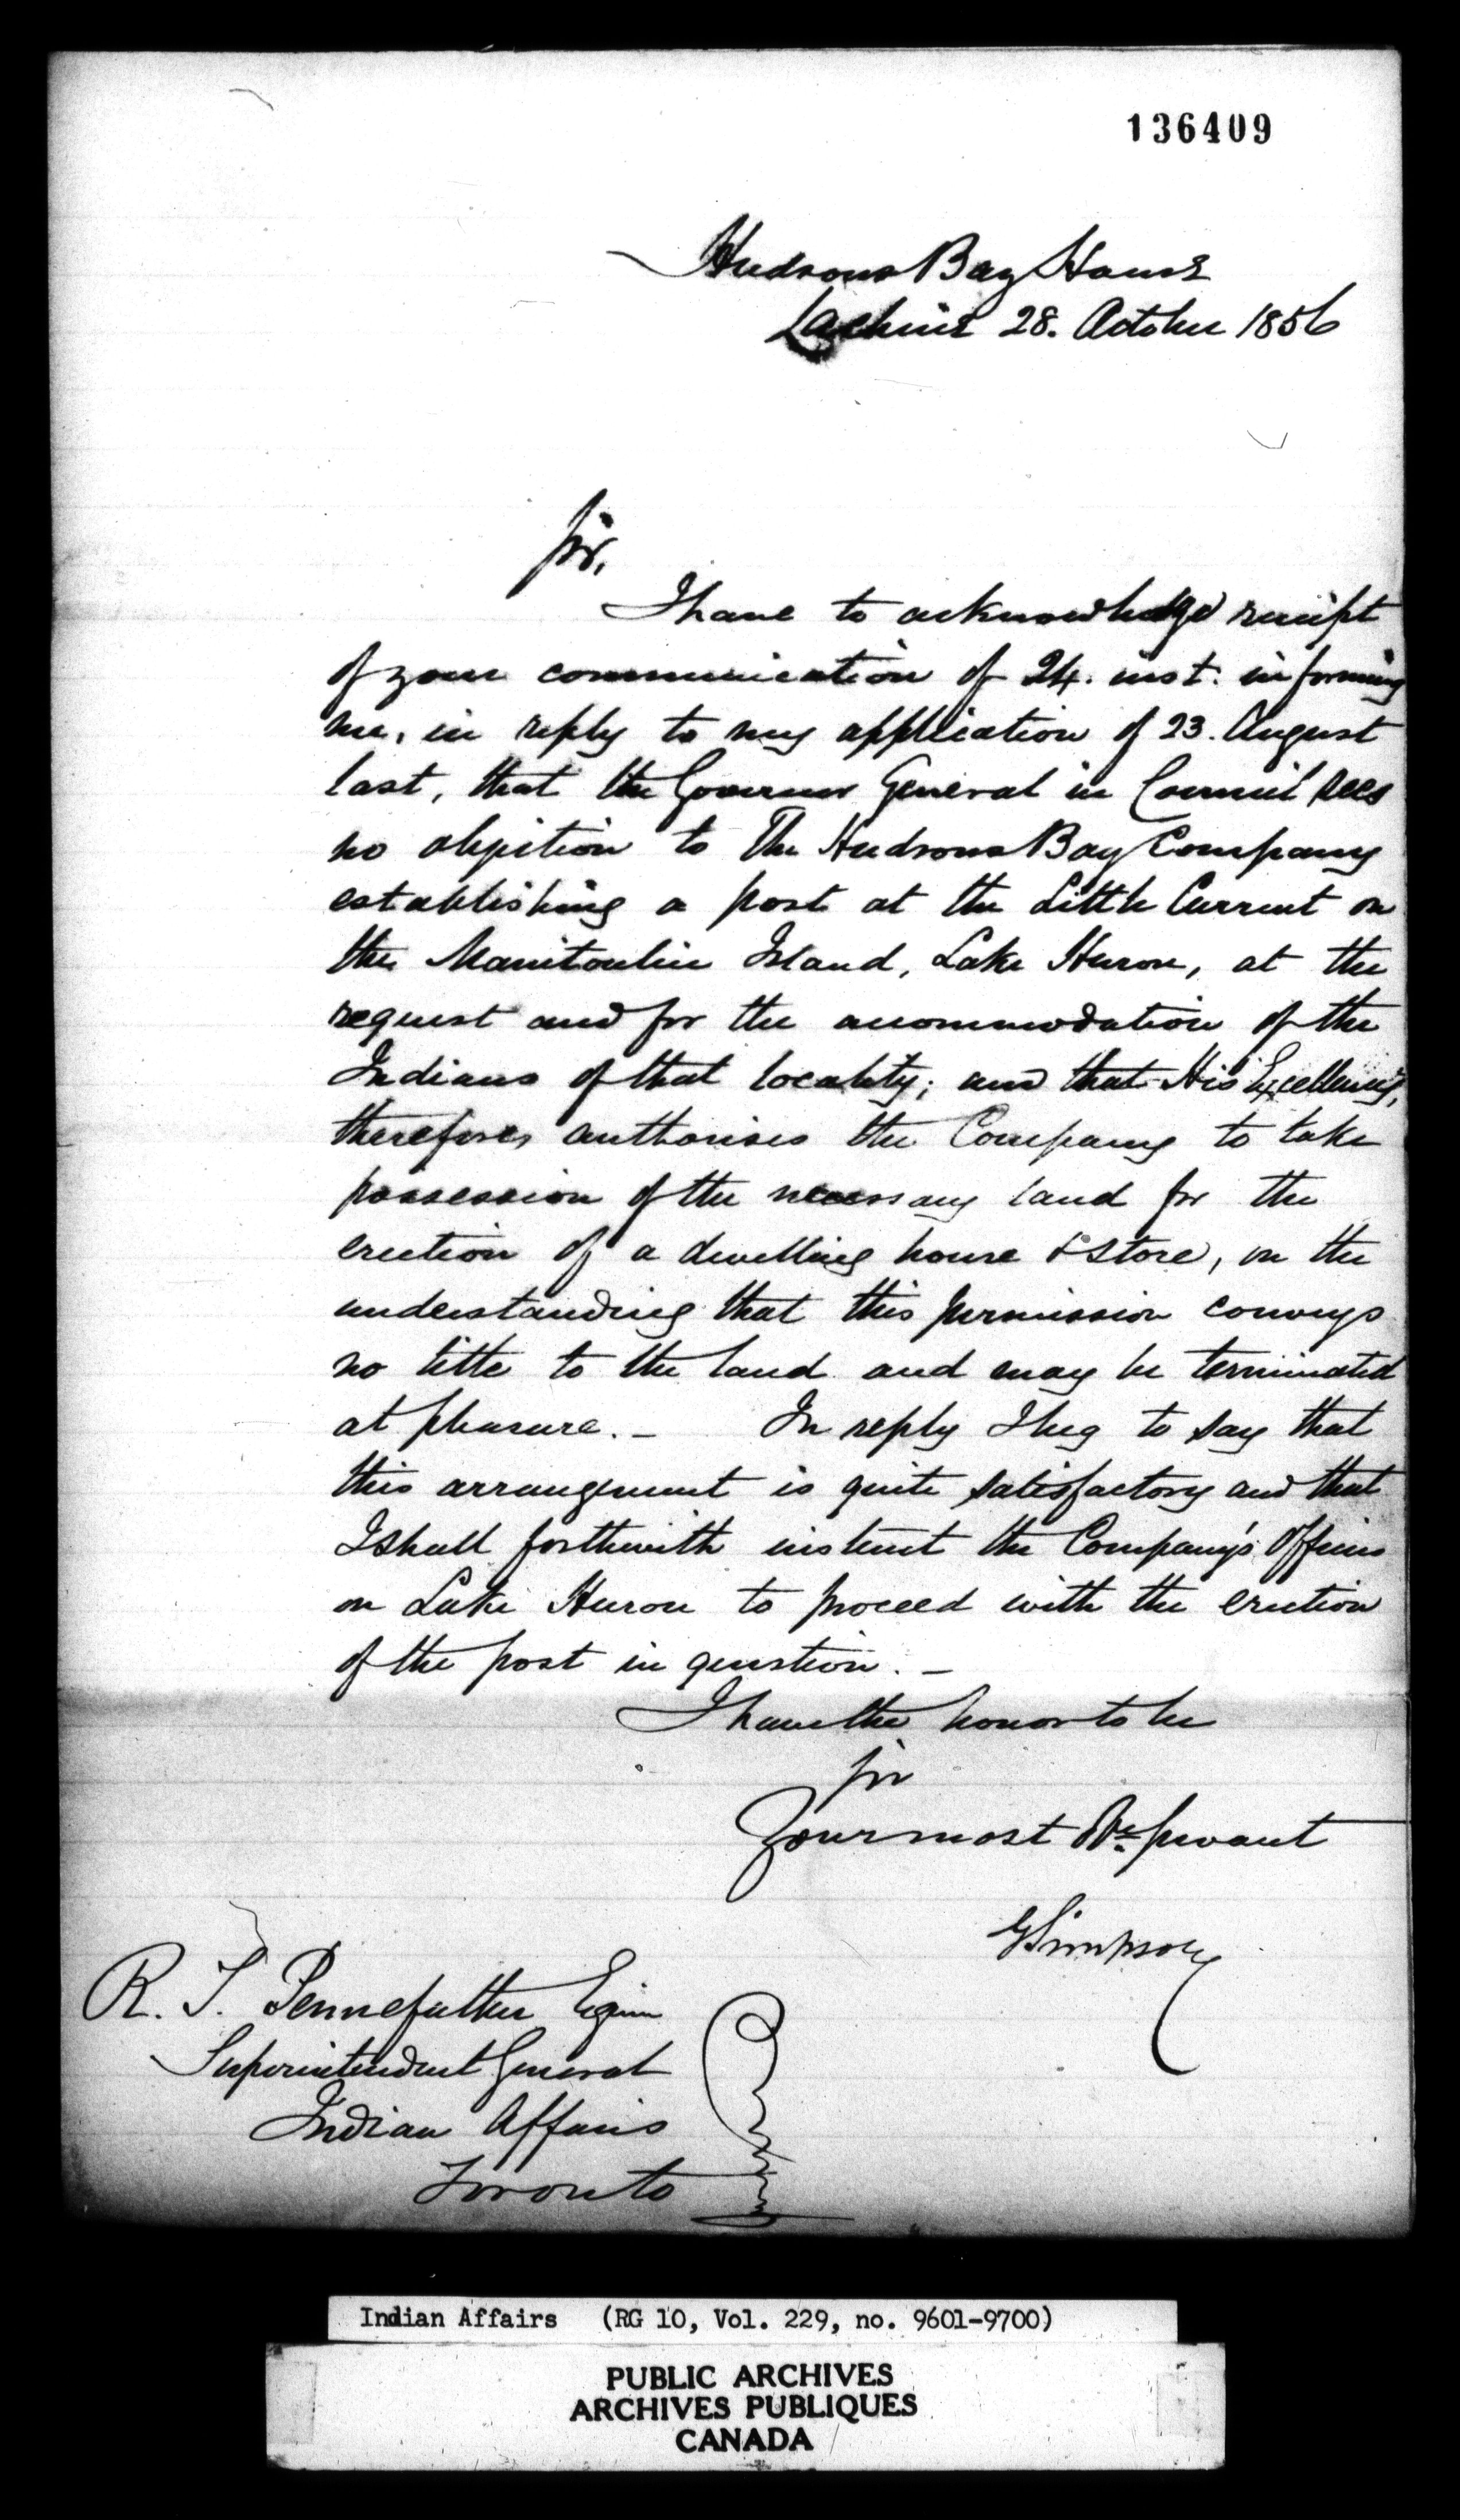 136409
Hudsons Bay House
Lachine 28. October 1856
Sir,
I have to acknowledge receipt
of your communication of 24. inst. informing
me, in reply to my application of 23. August
last, that the Governor General in Council sees
no objection to The Hudsons Bay Company
establishing a post at the Little Current on
the Manitoulin Island, Lake Huron, at the
request and for the accommodation of the
Indians of that locality; and that His Excellency,
therefore, authorises the Company to take
possession of the necessary land for the
erection of a dwelling house & store, on the
understanding that this permission conveys
no title to the land and may be terminated
at pleasure. – In reply I beg to say that
this arrangement is quite satisfactory and that
I shall forthwith instruct the Company's Officers
on Lake Huron to proceed with the erection
of the post in question. –
I have the honor to be
Sir
Your most Servant
G Simpson
R. T. Pennefather Esquire
Superintendent General
Indian Affairs
Toronto
Indian Affairs (RG 10, Vol. 229, no. 9601-9700)
PUBLIC ARCHIVES
ARCHIVES PUBLIQUES
CANADA